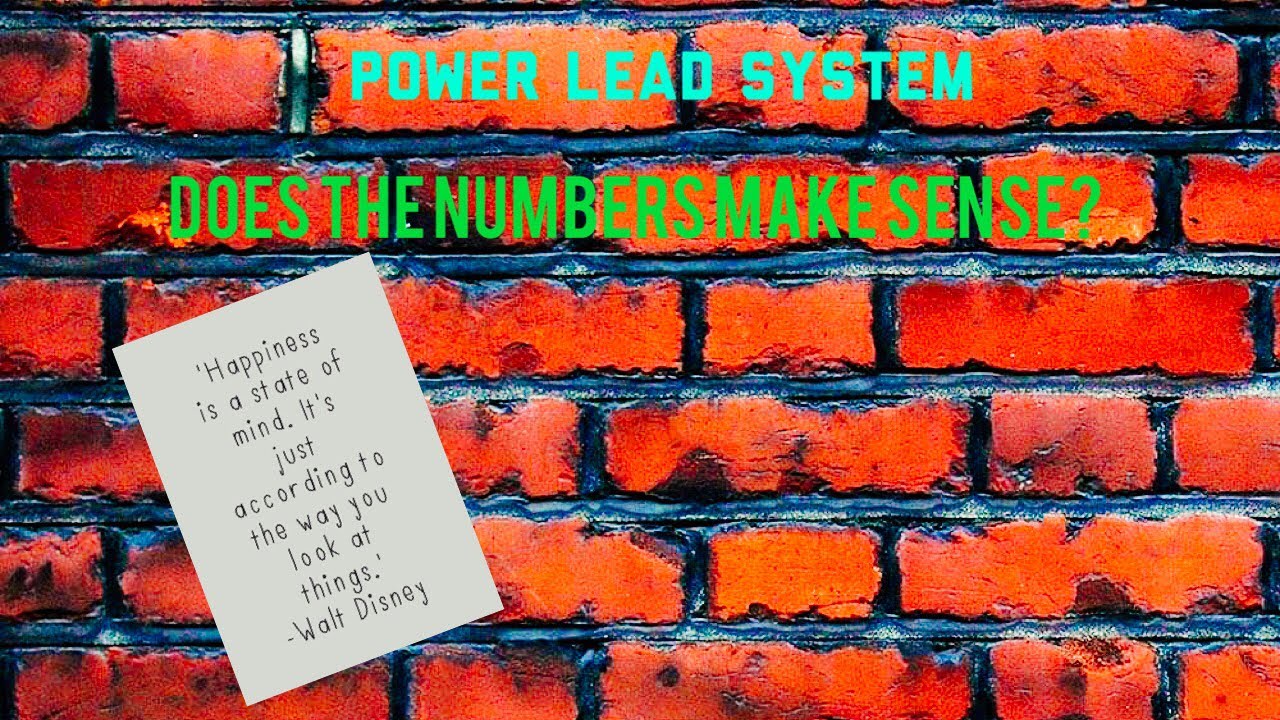 POWER LEAD SYSTEM
DOES THE NUMBERS MAKE SENSE?
'Happiness
is a state of
mind. It's
just
according to
the way you
look at
things.'
-Walt Disney